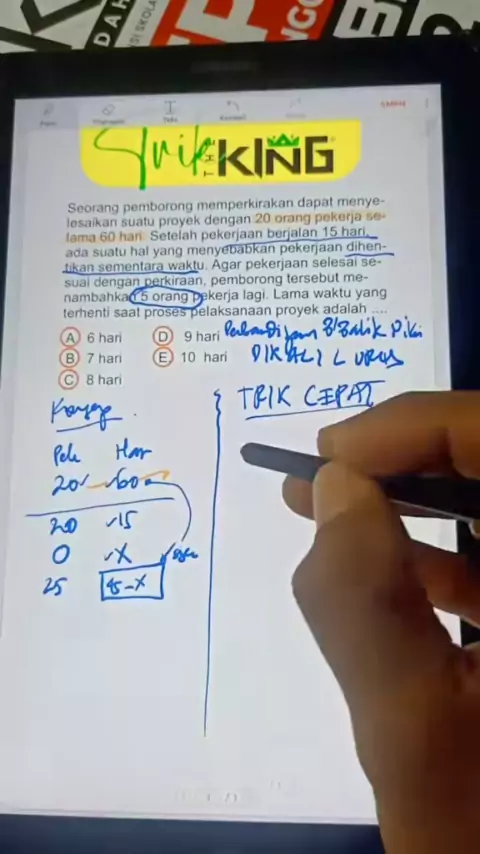 DAH
SI SKOLA
Teks
Simpan
Trik
THE KING
Seorang pemborong memperkirakan dapat menye-
lesaikan suatu proyek dengan 20 orang pekerja se-
lama 60 hari. Setelah pekerjaan berjalan 15 hari,
ada suatu hal yang menyebabkan pekerjaan dihen-
tikan sementara waktu. Agar pekerjaan selesai se-
suai dengan perkiraan, pemborong tersebut me-
nambahkan 5 orang pekerja lagi. Lama waktu yang
terhenti saat proses pelaksanaan proyek adalah ....
A 6 hari D 9 hari
B 7 hari E 10 hari
C 8 hari
DIKALI LURUS
TRIK CEPAT
Konsep
Pek Hari
20 60
20 15
0 X
25 45-X